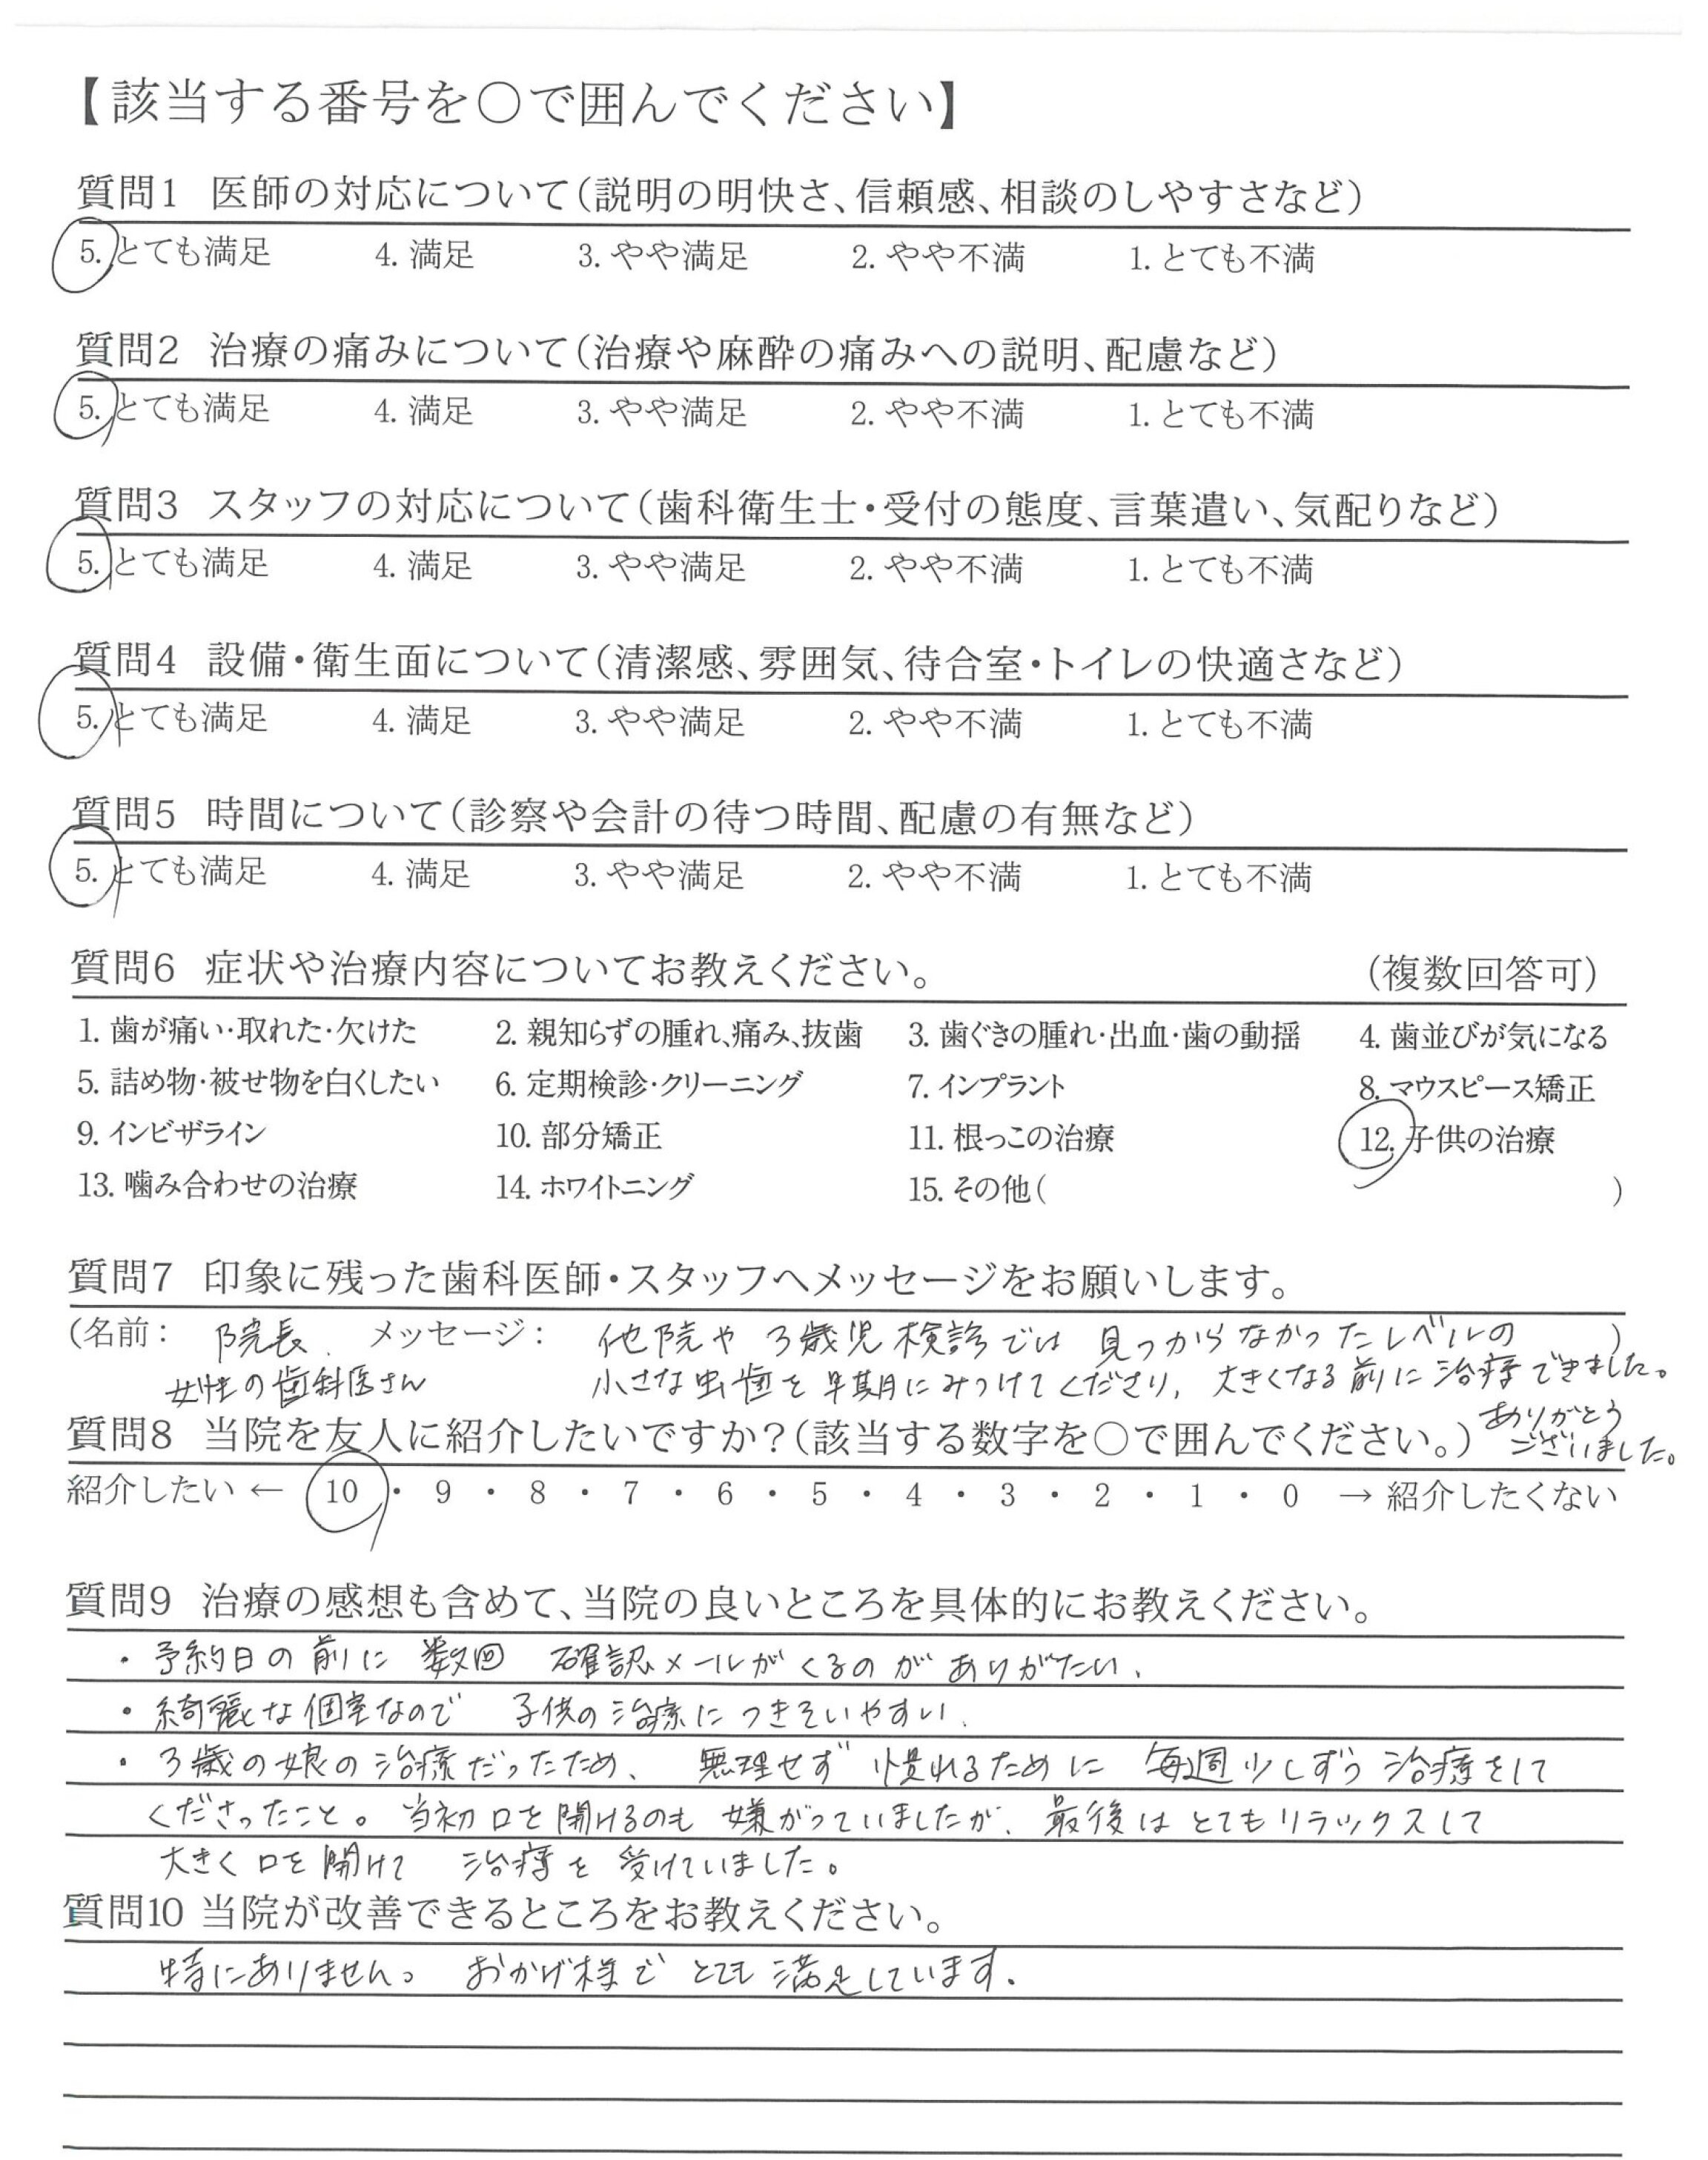 【該当する番号を〇で囲んでください】
質問1 医師の対応について(説明の明快さ、信頼感、相談のしやすさなど)
5. とても満足 4. 満足 3. やや満足 2. やや不満 1. とても不満
質問2 治療の痛みについて(治療や麻酔の痛みへの説明、配慮など)
5. とても満足 4. 満足 3. やや満足 2. やや不満 1. とても不満
質問3 スタッフの対応について(歯科衛生士・受付の態度、言葉遣い、気配りなど)
5. とても満足 4. 満足 3. やや満足 2. やや不満 1. とても不満
質問4 設備・衛生面について(清潔感、雰囲気、待合室・トイレの快適さなど)
5. とても満足 4. 満足 3. やや満足 2. やや不満 1. とても不満
質問5 時間について(診察や会計の待つ時間、配慮の有無など)
5. とても満足 4. 満足 3. やや満足 2. やや不満 1. とても不満
質問6 症状や治療内容についてお教えください。 (複数回答可)
1. 歯が痛い・取れた・欠けた 2. 親知らずの腫れ、痛み、抜歯 3. 歯ぐきの腫れ・出血・歯の動揺 4. 歯並びが気になる
5. 詰め物・被せ物を白くしたい 6. 定期検診・クリーニング 7. インプラント 8. マウスピース矯正
9. インビザライン 10. 部分矯正 11. 根っこの治療 12. 子供の治療
13. 噛み合わせの治療 14. ホワイトニング 15. その他( )
質問7 印象に残った歯科医師・スタッフへメッセージをお願いします。
(名前: 院長. メッセージ: 他院や 3歳児検診では 見つからなかったレベルの )
女性の歯科医さん 小さな虫歯を早期にみつけてくださり、大きくなる前に治療できました。
ありがとう
ございました。
質問8 当院を友人に紹介したいですか?(該当する数字を〇で囲んでください。)
紹介したい ← 10 ・ 9 ・ 8 ・ 7 ・ 6 ・ 5 ・ 4 ・ 3 ・ 2 ・ 1 ・ 0 → 紹介したくない
質問9 治療の感想も含めて、当院の良いところを具体的にお教えください。
・予約日の前に 数回 確認メールがくるのがありがたい.
・綺麗な個室なので 子供の治療につきそいやすい.
・3歳の娘の治療だったため、無理せず 慣れるために 毎週少しずつ治療をして
くださったこと。当初口を開けるのも嫌がっていましたが、最後はとてもリラックスして
大きく口を開けて 治療を受けていました。
質問10 当院が改善できるところをお教えください。
特にありません。 おかげ様で とても満足しています.